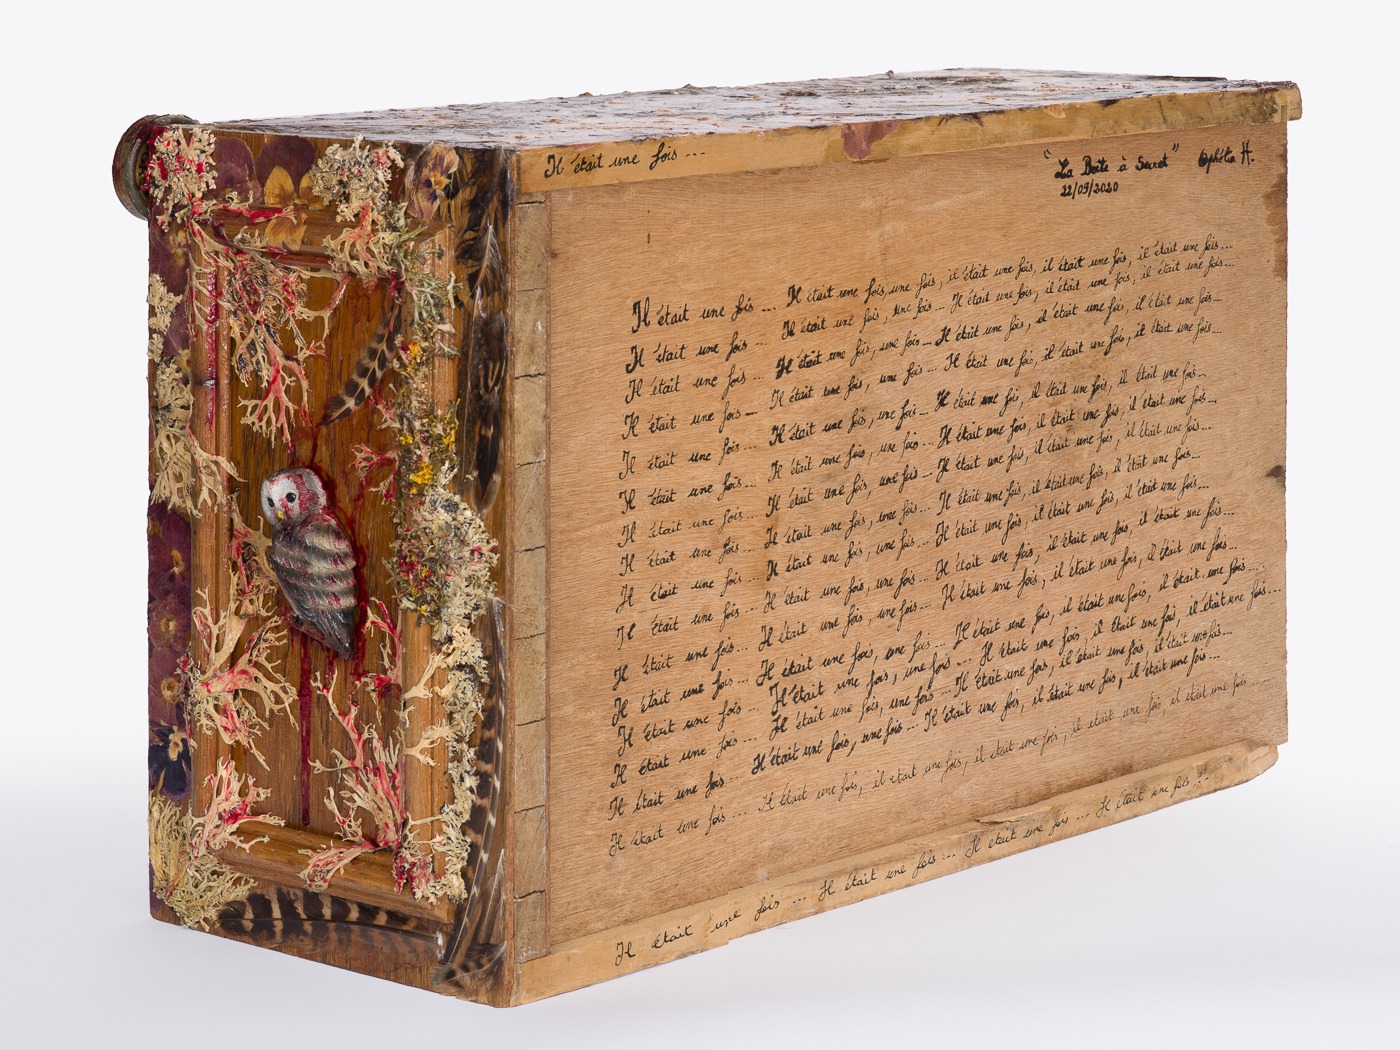 Il était une fois...
"La Boîte à Secret" Ophélia H.
22/09/2020
Il était une fois ... Il était une fois, une fois, il était une fois, il était une fois, il était une fois...
Il était une fois ... Il était une fois, une fois... Il était une fois, il était une fois, il était une fois...
Il était une fois ... Il était une fois, une fois... Il était une fois, il était une fois, il était une fois...
Il était une fois ... Il était une fois, une fois... Il était une fois, il était une fois, il était une fois...
Il était une fois ... Il était une fois, une fois... Il était une fois, il était une fois, il était une fois...
Il était une fois... Il était une fois, une fois... Il était une fois, il était une fois, il était une fois...
Il était une fois... Il était une fois, une fois... Il était une fois, il était une fois, il était une fois...
Il était une fois... Il était une fois, une fois... Il était une fois, il était une fois, il était une fois...
Il était une fois... Il était une fois, une fois... Il était une fois, il était une fois, il était une fois...
Il était une fois... Il était une fois, une fois... Il était une fois, il était une fois, il était une fois...
Il était une fois... Il était une fois, une fois... Il était une fois, il était une fois, il était une fois...
Il était une fois... Il était une fois, une fois... Il était une fois, il était une fois, il était une fois...
Il était une fois... Il était une fois, une fois... Il était une fois, il était une fois, il était une fois...
Il était une fois... Il était une fois, une fois... Il était une fois, il était une fois, il était une fois...
Il était une fois... Il était une fois, une fois... Il était une fois, il était une fois, il était une fois...
Il était une fois... Il était une fois, il était une fois, il était une fois, il était une fois, il était une fois...
Il était une fois ... Il était une fois ... Il était une fois ... Il était une fois...